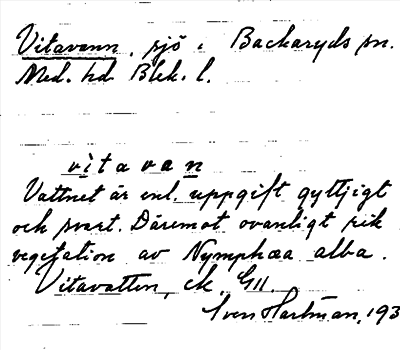 Vitavann, sjö i Backaryds sn.
Med. hd Blek. l.
vitavan
Vattnet är enl. uppgift gyttjigt
och svart. Däremot ovanligt rik
vegetation av Nymphæa alba.
Vitavatten, ek. G11.
Sven Hartman, 193